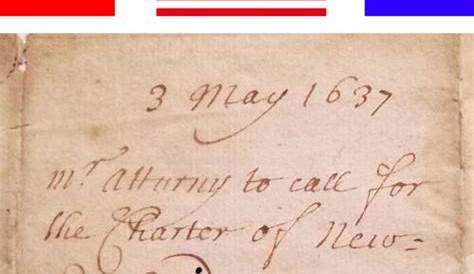 3 May 1637
mr Atturny to call for
the Charter of New-